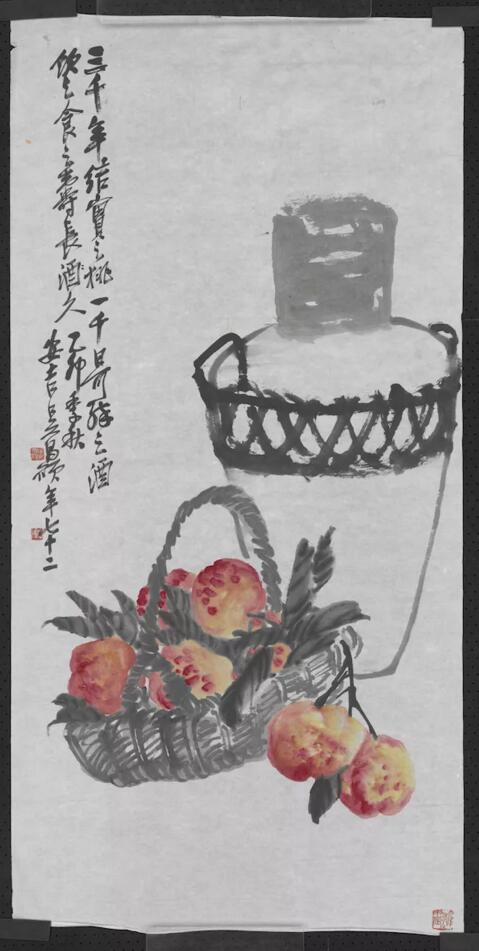 三千年結實之桃一千日可醉之酒
飲之食之壽長酒久 乙卯季秋
安吉吳昌碩年七十二